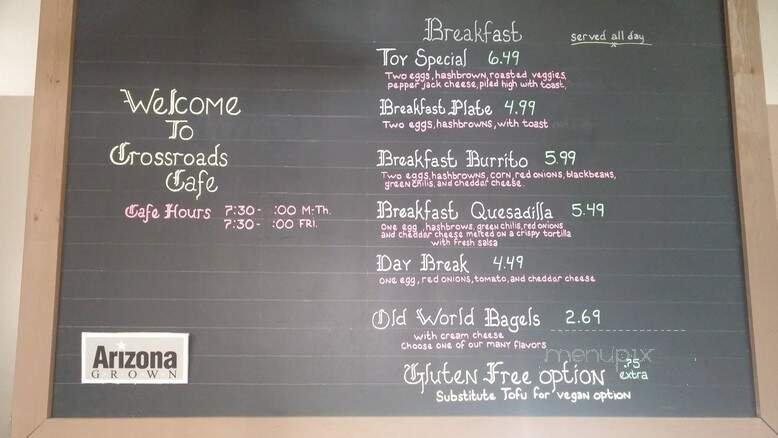 Welcome
To
Crossroads
Cafe
Cafe Hours 7:30- :00 M-Th.
7:30- :00 FRI.
Arizona
GROWN
Breakfast
served all day
Toy Special 6.49
Two eggs, hashbrown, roasted veggies,
pepper jack cheese, piled high with toast,
Breakfast Plate 4.99
Two eggs, hashbrowns, with toast
Breakfast Burrito 5.99
Two eggs, hashbrowns, corn, red onions, blackbeans,
green chilis, and cheddar cheese
Breakfast Quesadilla 5.49
one egg, hashbrows, green chilis, red onions
and cheddar cheese melted on a crispy tortilla
with fresh salsa
Day Break 4.49
one egg, red onions, tomato, and cheddar cheese
Old World Bagels 2.69
with cream cheese
Choose one of our many flavors
menupix
Gluten Free option .75 extra
Substitute Tofu for vegan option